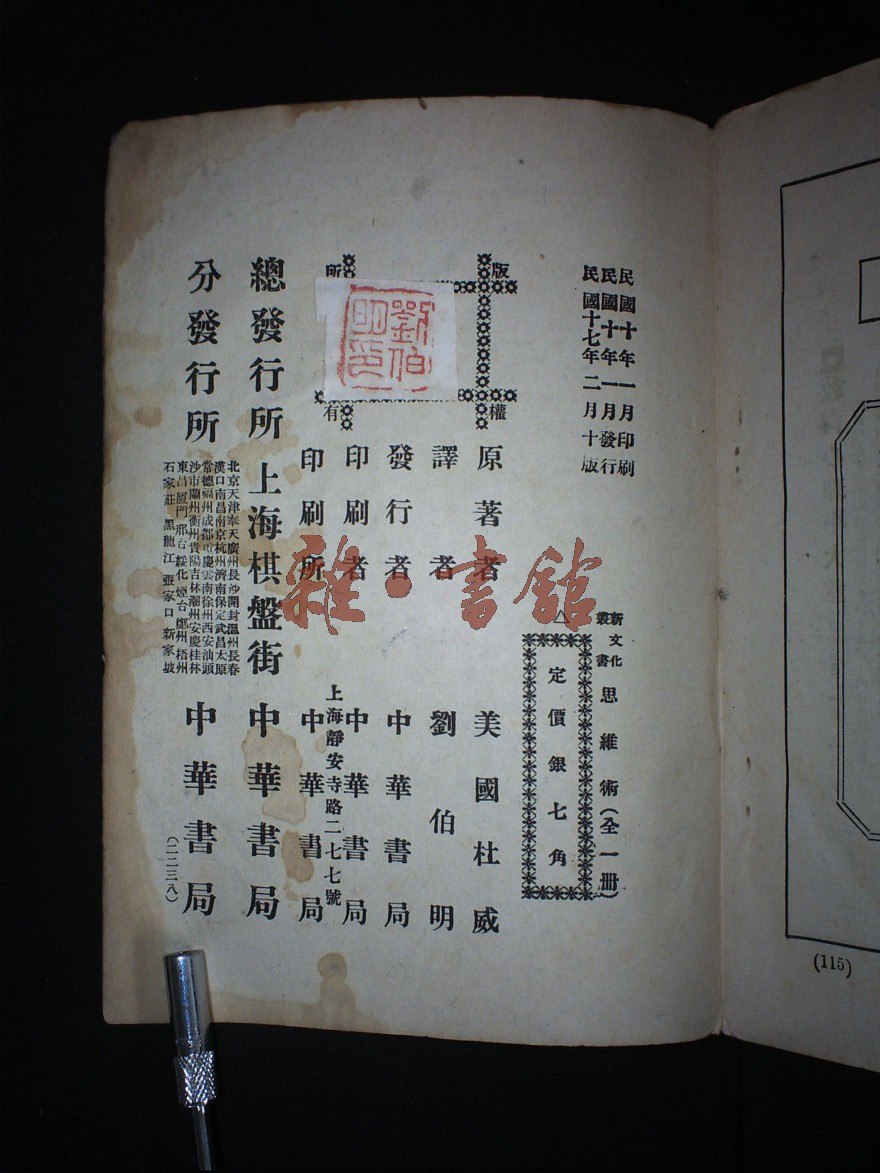 民國十年一月印刷
民國十年一月發行
民國十七年二月十版
新文化叢書 思維術(全一冊)
△
定價銀七角
版權所有
劉伯明印
原著者 美國杜威
譯者 劉伯明
發行者 中華書局
印刷者 中華書局
上海靜安寺路二七七號
印刷所 中華書局
總發行所 上海棋盤街 中華書局
分發行所 中華書局
北京天津奉天廣州長沙開封溫州長春
漢口南昌南京杭州濟南保定武昌太原
常德福州成都重慶雲南徐州西安汕頭
沙市蘭州衡州貴陽吉林潮州安慶桂林
東昌廈門邢台綏化煙台鄭州梧州
石家莊黑龍江張家口新家坡
(二二三八)
雜·書館
(115)